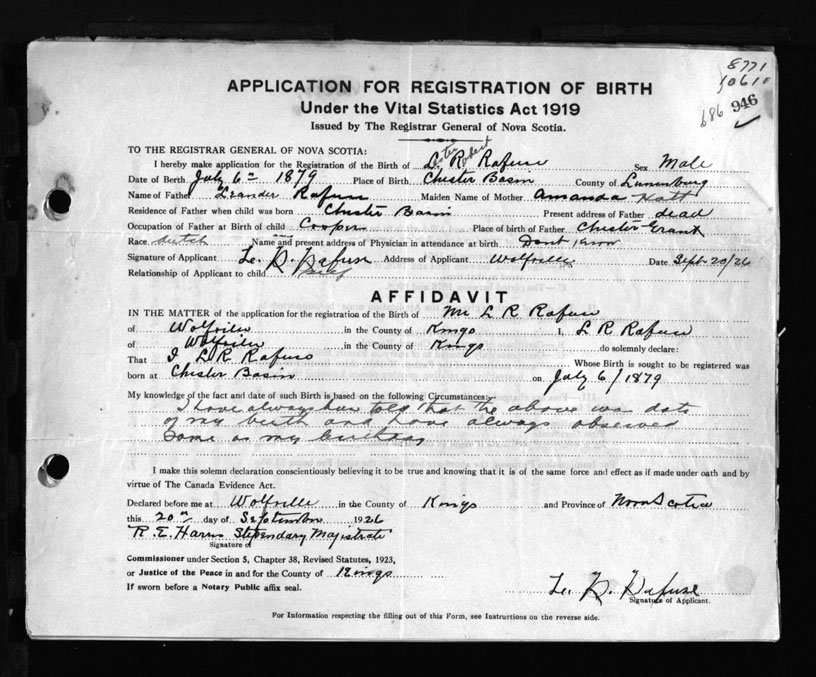 8771
946
686
APPLICATION FOR REGISTRATION OF BIRTH
Under the Vital Statistics Act 1919
Issued by The Registrar General of Nova Scotia.
TO THE REGISTRAR GENERAL OF NOVA SCOTIA:
Robert
I hereby make application for the Registration of the Birth of L. R. Rafuse Sex Male
Date of Birth July 6th 1879 Place of Birth Chester Basin County of Lunenburg
Name of Father Leander Rafuse Maiden Name of Mother Amanda Hatt
Residence of Father when child was born Chester Basin Present address of Father dead
Occupation of Father at Birth of child Cooper Place of birth of Father Chester Grant
Race dutch Name and present address of Physician in attendance at birth Dont know
Signature of Applicant Le. R. Rafuse Address of Applicant Wolfville Date Sept 20/26
Relationship of Applicant to child Self
AFFIDAVIT
IN THE MATTER of the application for the registration of the Birth of Mr L R Rafuse
of Wolfville in the County of Kings I, L R Rafuse
of Wolfville in the County of Kings do solemnly declare:
That I L R Rafuse Whose Birth is sought to be registered was
born at Chester Basin on July 6/1879
My knowledge of the fact and date of such Birth is based on the following Circumstances:
I have always been told that the above was date
of my birth and have always observed
same as my birthday
I make this solemn declaration conscientiously believing it to be true and knowing that it is of the same force and effect as if made under oath and by
virtue of The Canada Evidence Act.
Declared before me at Wolfville in the County of Kings and Province of Nova Scotia
this 20th day of September 1926
R. E. Harris Stipendary Magistrate
Signature of
Commissioner under Section 5, Chapter 38, Revised Statutes, 1923,
or Justice of the Peace in and for the County of Kings
If sworn before a Notary Public affix seal.
Le. R. Rafuse
Signature of Applicant.
For Information respecting the filling out of this Form, see Instructions on the reverse side.